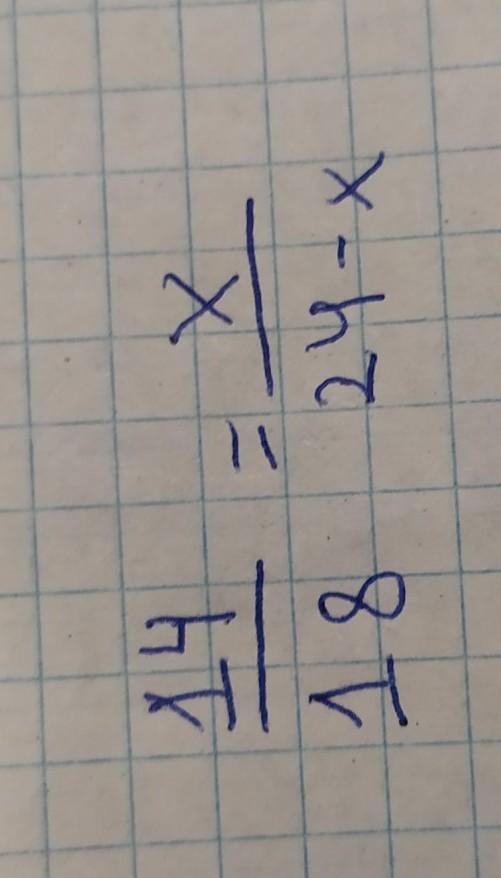 14/18 = x/(24-x)